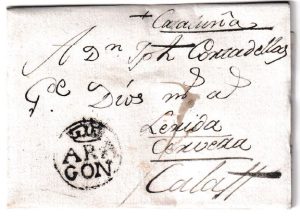 + Cataluña
A Dn Jph Corradellas
Ge Dios ms as
Lerida
Cervera
Calaff
ARA
GON